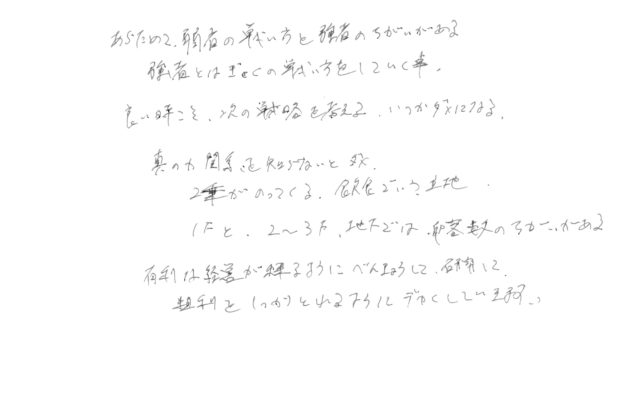 あらためて、弱者の戦い方と強者のちがいがある
強者とはぎゃくの戦い方をしていく事。
良い時こそ、次の戦略を考える、いつかダメになる。
真の力関係を知らないとダメ.
がのってくる、飲食でいう立地
1Fと、2〜3F、地下では、のちがいがある
有利な経営が出来るようにべんきょうして、研究して、
粗利をしっかりとれるようにデカくしてい